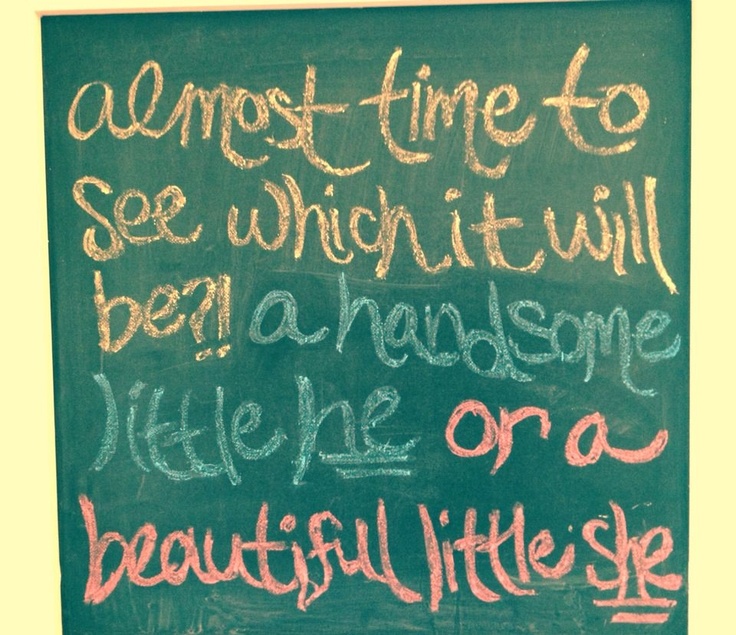 almost time to
see which it will
be?! a handsome
little he or a
beautiful little she